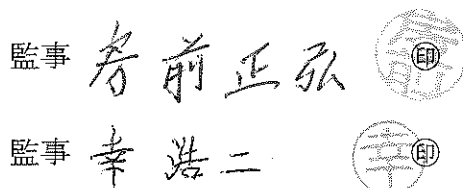 監事 房前正弘 ㊞
監事 幸浩二 ㊞